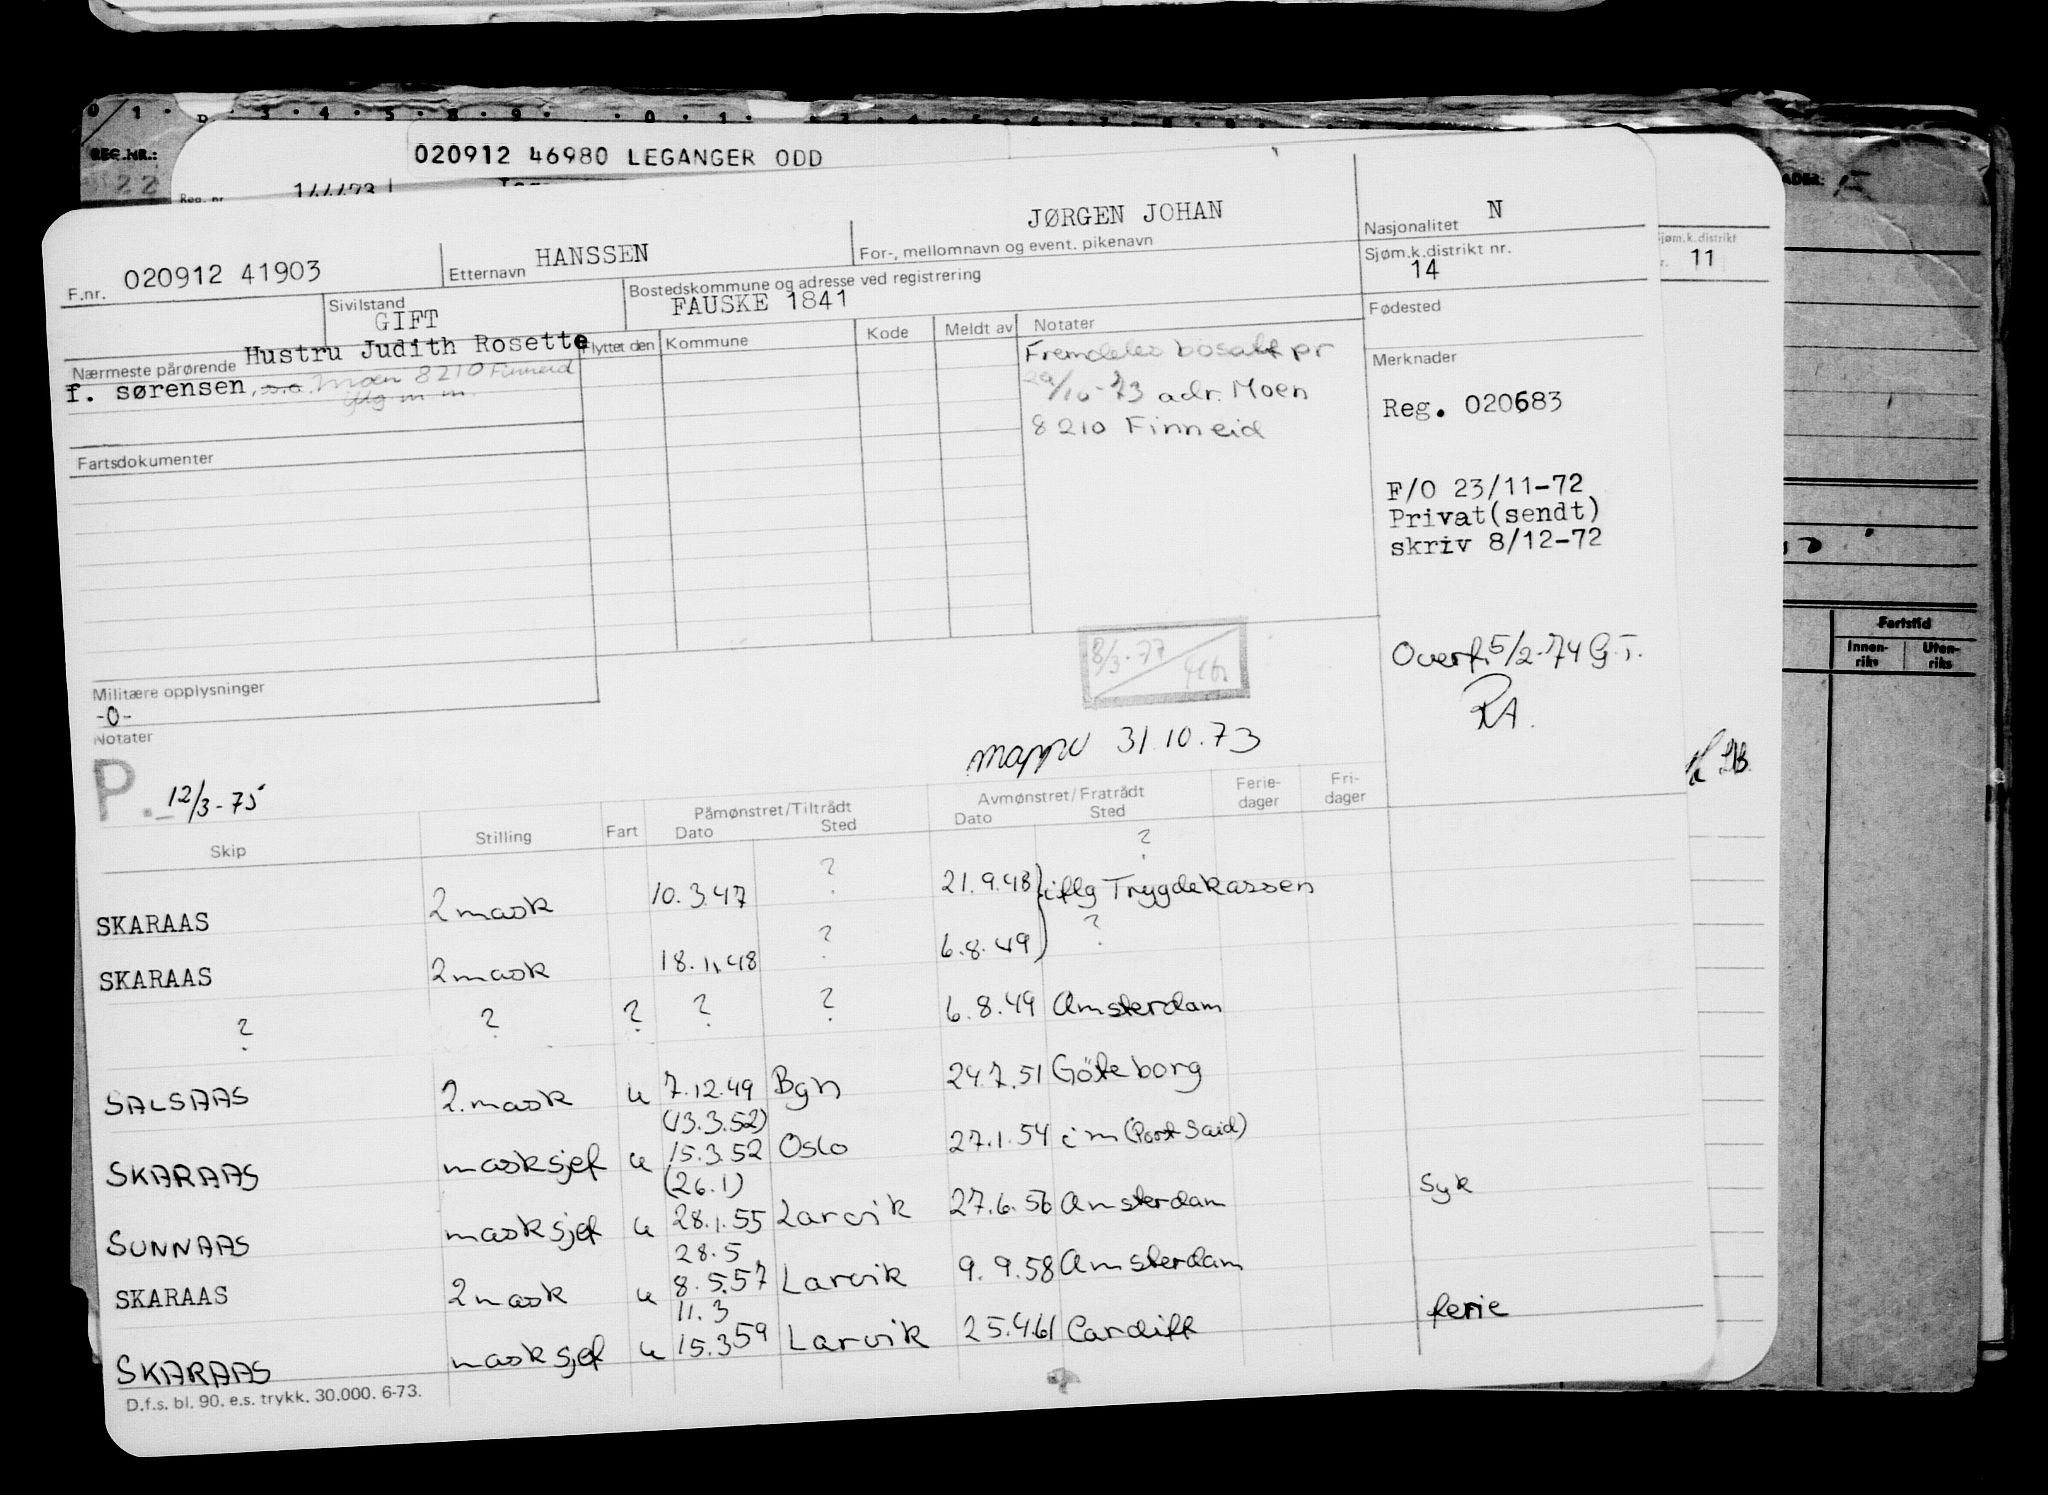 020912 46980 LEGANGER ODD
REG.NR.:
Reg. nr
F.nr. 020912 41903
Etternavn HANSSEN
JØRGEN JOHAN
For-, mellomnavn og event. pikenavn
Nasjonalitet N
Sjøm.k.distrikt nr.
14
11
Sivilstand
GIFT
Bostedskommune og adresse ved registrering
FAUSKE 1841
Fødested
Nærmeste pårørende Hustru Judith Rosette
f. sørensen, s.a. Moen 8210 Finneid
iflg m m.
Flyttet den Kommune Kode Meldt av Notater
Fremdeles bosatt pr
29/10-73 adr. Moen
8210 Finneid
Merknader
Reg. 020683
F/O 23/11-72
Privat(sendt)
skriv 8/12-72
Fartsdokumenter
Overf. 5/2-74 G.T.
RA.
8/3-77
Militære opplysninger
-0-
Notater
P. 12/3-75
mappe 31.10.73
Fartstid
Innen-riks Uten-riks
Skip Stilling Fart Påmønstret/Tiltrådt Dato Sted Avmønstret/Fratrådt Dato Sted Ferie-dager Fri-dager
SKARAAS 2 mask 10.3.47 ? 21.9.48 ? iflg Trygdekassen
SKARAAS 2 mask 18.11.48 ? 6.8.49 ?
? ? ? ? ? 6.8.49 Amsterdam
SALSAAS 2. mask u 7.12.49 Bgn 24.7.51 Göteborg
(13.3.52)
SKARAAS masksjef u 15.3.52 Oslo 27.1.54 i m (Port Said)
(26.1)
SUNNAAS masksjef u 28.1.55 Larvik 27.6.56 Amsterdam Syk
28.5
SKARAAS 2 mask u 8.5.57 Larvik 9.9.58 Amsterdam
11.3
SKARAAS masksjef u 15.3.59 Larvik 25.4.61 Cardiff ferie
D.f.s. bl. 90. e.s. trykk. 30.000. 6-73.